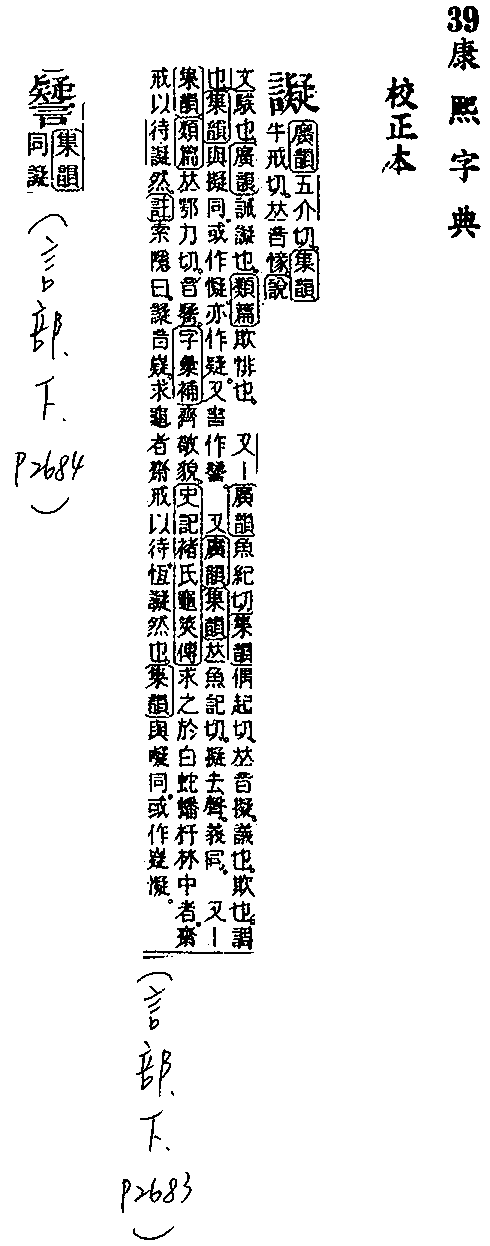 39康熙字典
校正本
譺
廣韻五介切集韻
牛戒切𠀤音㦎說
文騃也廣韻誡譺也類篇欺悱也 又丨廣韻魚紀切集韻偶起切𠀤音擬議也欺也調
也集韻與擬同或作儗亦作疑又書作譬 又廣韻集韻𠀤魚記切擬去聲義同 又丨
集韻類篇𠀤鄂力切音嶷字彙補齊敬貌史記褚氏龜策傳求之於白蛇蟠杅林中者齋
戒以待譺然註索隱曰譺音嶷求龜者齋戒以待恆譺然也集韻與嶷同或作嶷儗
集韻
同譺
(言部.下.
P2683
)
(言部.下.
P2684
)